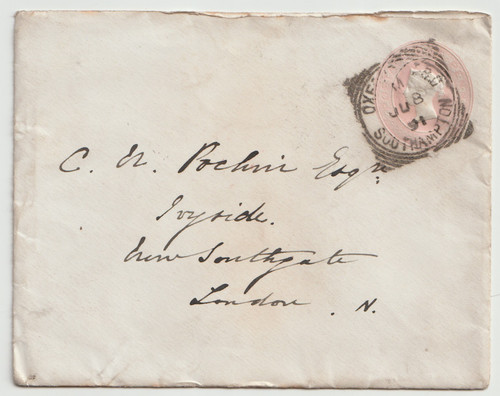 OXF
JU 8
91
SOUTHAMPTON
C. N. Pochin Esqr
Ivyside.
New Southgate
London. N.